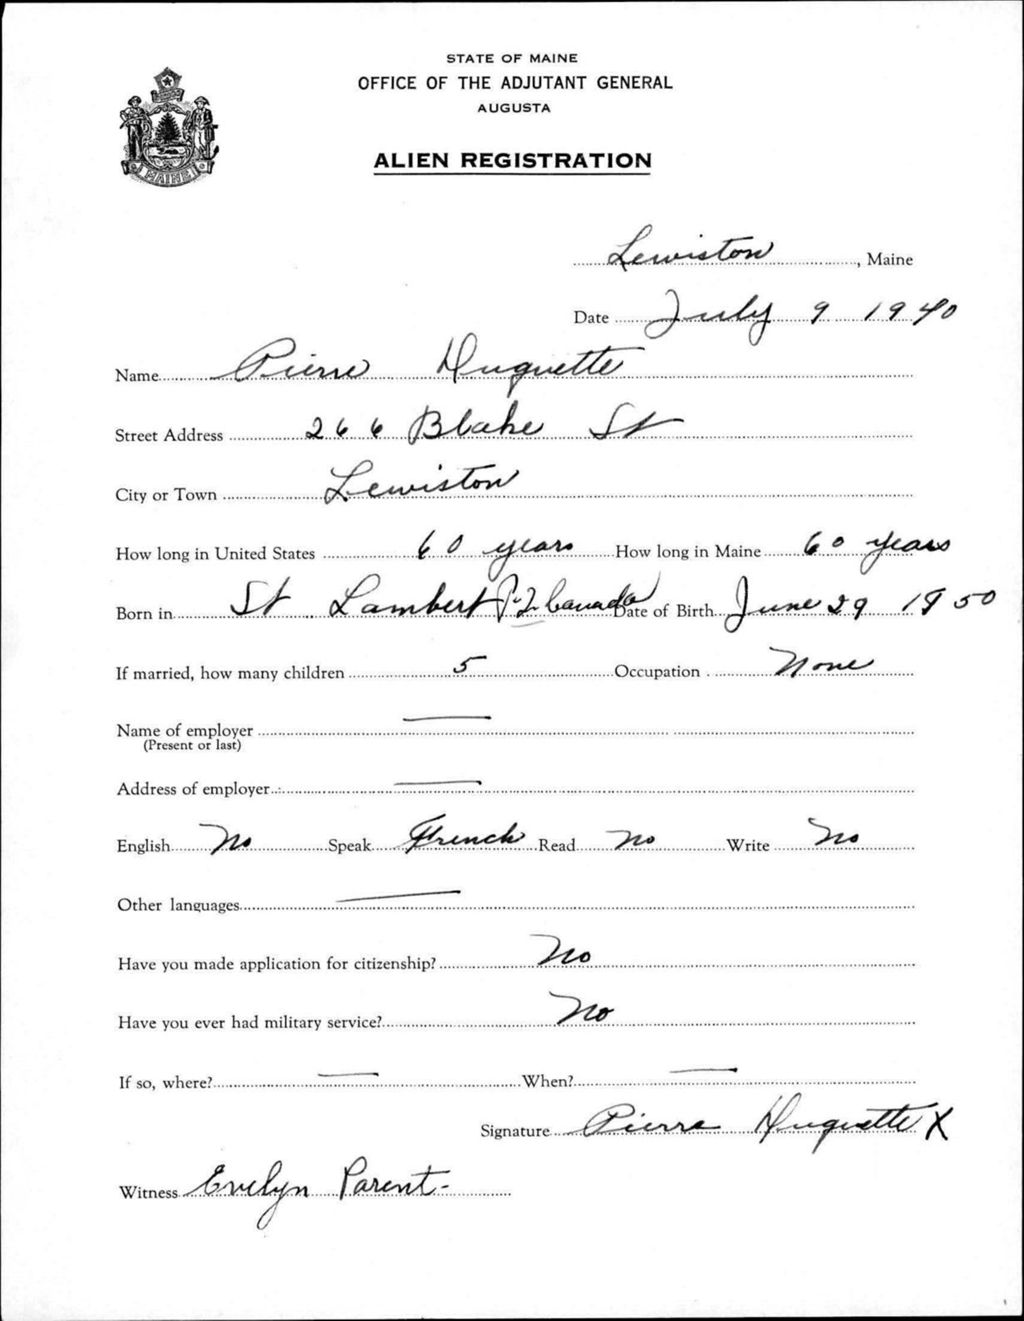 STATE OF MAINE
OFFICE OF THE ADJUTANT GENERAL
AUGUSTA
ALIEN REGISTRATION
MAINE
Lewiston, Maine
Date July 9 1940
Name Pierre Huguette
Street Address 266 Blake St
City or Town Lewiston
How long in United States 60 years How long in Maine 60 years
Born in St Lambert P.Q. Canada Date of Birth June 29 1850
If married, how many children 5 Occupation None
Name of employer —
(Present or last)
Address of employer —
English No Speak French Read No Write No
Other languages —
Have you made application for citizenship? No
Have you ever had military service? No
If so, where? — When? —
Signature Pierre Huguette X
Witness Evelyn Parent